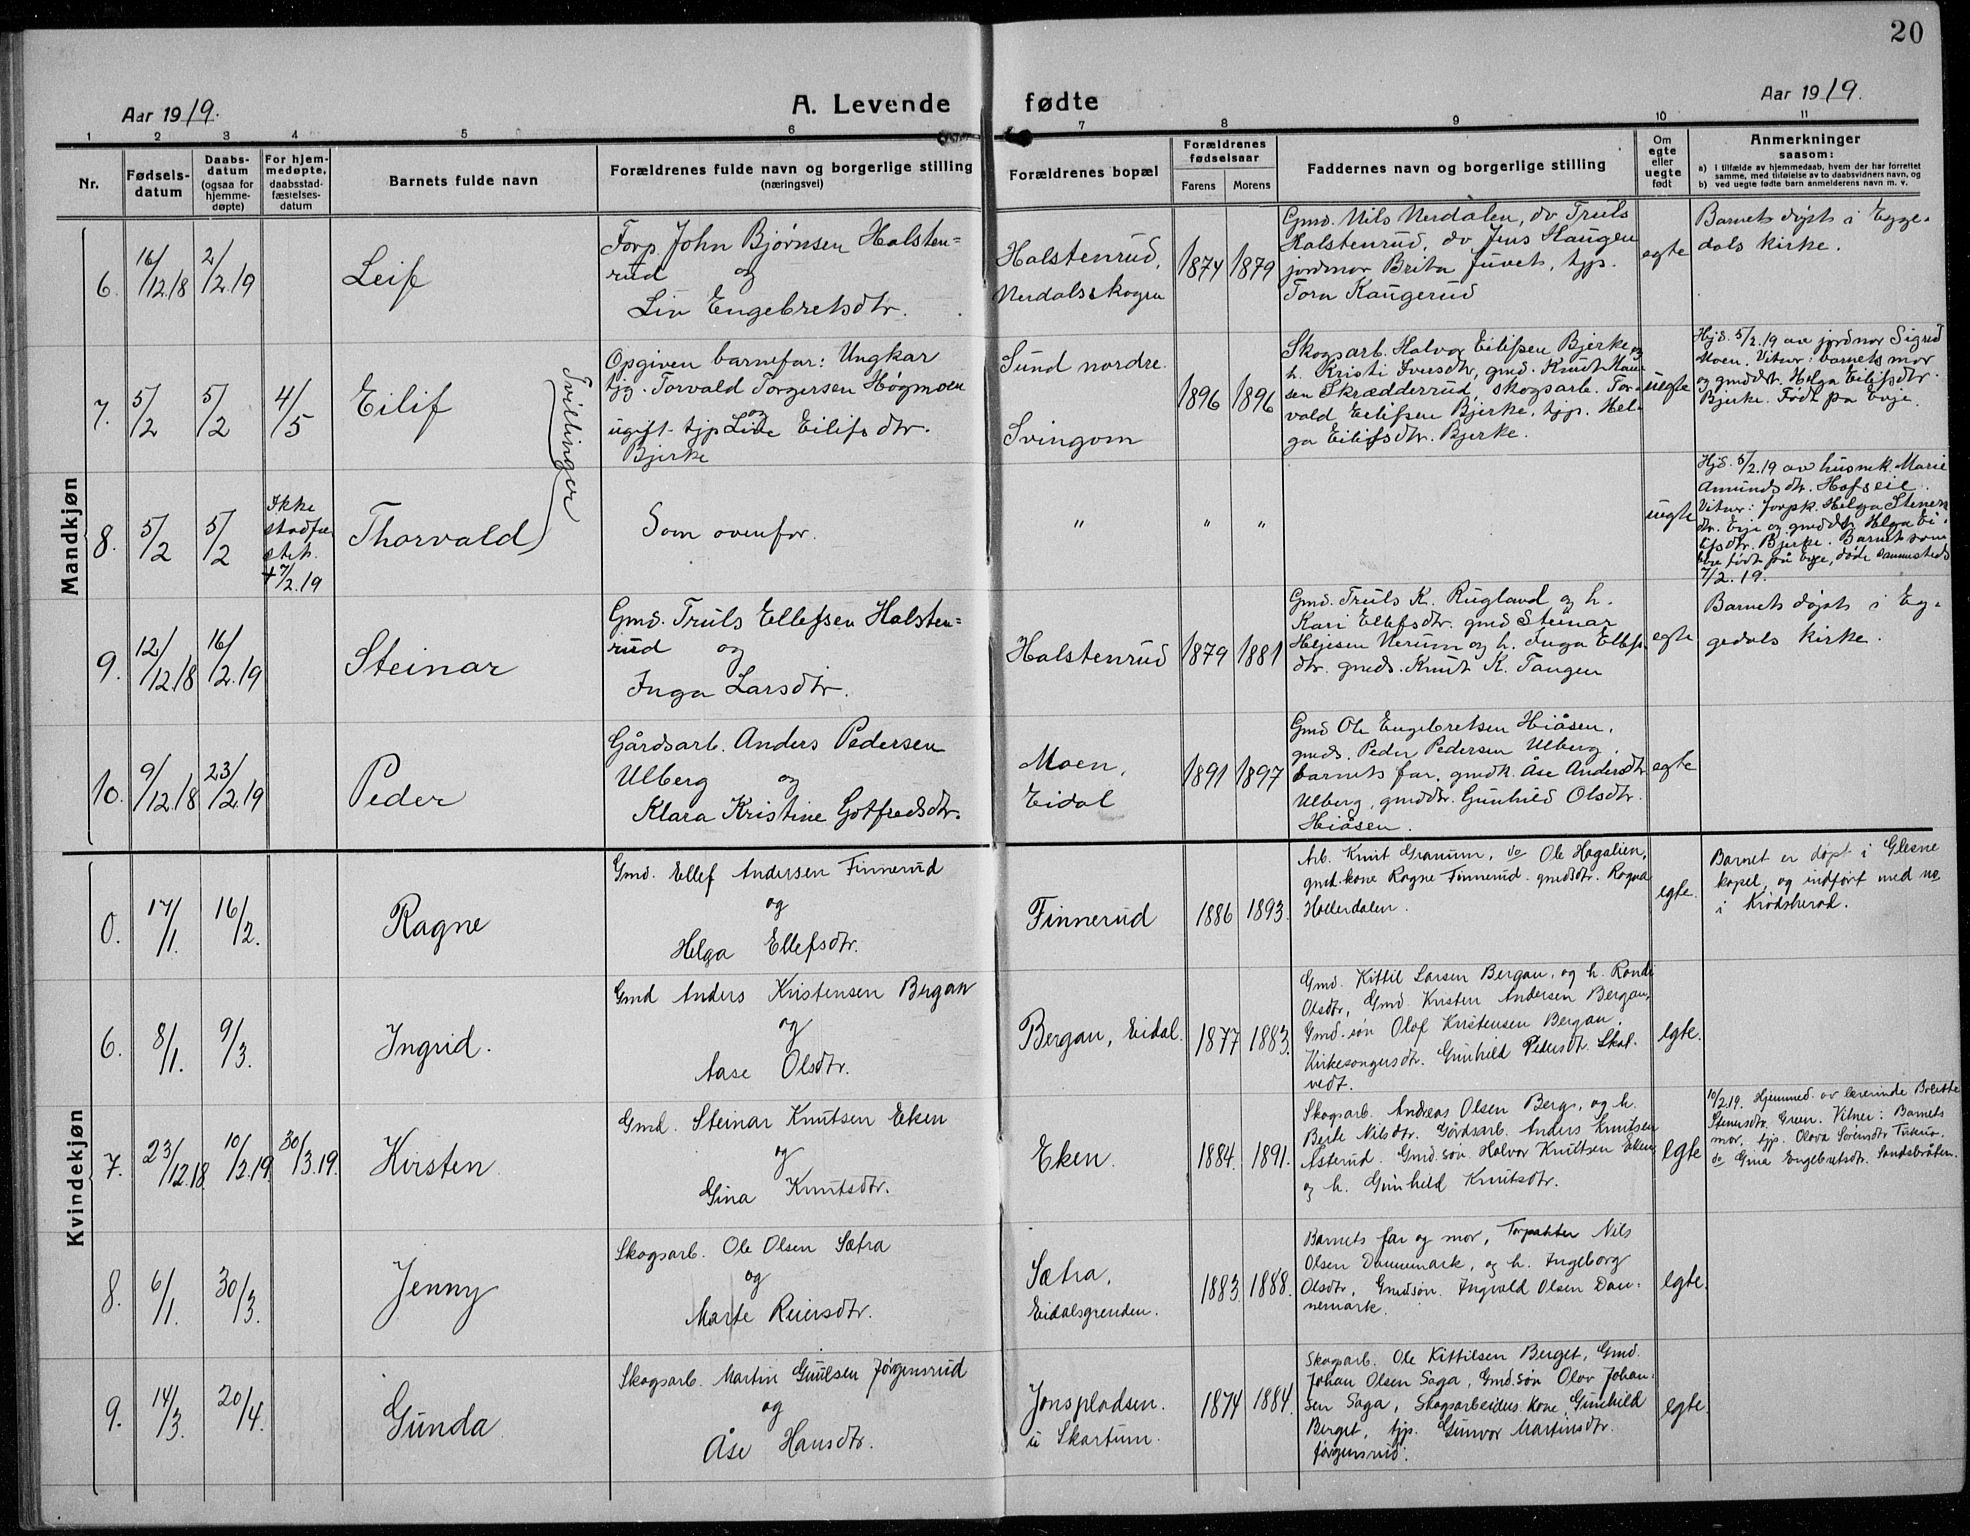 20
Aar 1919.
A. Levende fødte
Aar 1919.
1 2 3 4 5 6 7 8 9 10 11
Nr.
Fødsels-
datum
Daabs-
datum
(ogsaa for
hjemme-
døpte)
For hjem-
medøpte,
daabsstad-
fæstelses-
datum
Barnets fulde navn
Forældrenes fulde navn og borgerlige stilling
(næringsvei)
Forældrenes bopæl
Forældrenes
fødselsaar
Farens Morens
Faddernes navn og borgerlige stilling
Om
egte
eller
uegte
født
Anmerkninger
saasom:
a) i tilfælde av hjemmedaab, hvem der har forrettet
samme, med tilføielse av to daabsvidners navn, og
b) ved uegte fødte barn anmelderens navn m. v.
Mandkjøn
6.
16/12.18
2/2.19
Leif
Forp. John Bjørnsen Halsten=
rud og
Liv Engebretsdtr.
Halstenrud,
Nerdalsskogen
1874 1879
Gmd. Nils Nerdalen, do Truls
Halstenrud, do Jens Haugen
jordmor Brita Juvet, tjp.
Tora Kaugerud
egte
Barnet døpt i Egge-
dals kirke.
7.
5/2
5/2
4/5
Eilif
Tvillinger
Opgiven barnefar: Ungkar
tjg. Torvald Torgersen Høgmoen
og
ugift tjp Live Eilifsdtr.
Bjerke
Sund nordre
Svingom
1896 1896
Skogsarb. Halvor Eilifsen Bjerke og
h. Kristi Iversdtr, gmd. Knut Han
sen Skrædderrud skogsarb. Tor-
vald Eilifsen Bjerke, tjp. Hel-
ga Eilifsdtr. Bjerke.
uegte
Hjd. 5/2.19 av jordmor Sigrid
Moen. Vitner: barnets mor
og gmddt. Helga Eilifsdtr.
Bjerke. Født på Evje.
8.
5/2
5/2
Ikke
stadfæ
stet.
† 7/2.19
Thorvald
Som ovenfor.
" " "
uegte
Hjd. 5/2.19 av husmk. Marie
Amundsdtr. Hofseie.
Vitner: forpk. Helga Steners
dtr. Evje og gmddt. Helga Ei-
lifsdtr. Bjerke. Barnet som
ble født på Evje, døde sammesteds
7/2.19.
9.
12/12.18
16/2.19
Steinar
Gmd. Truls Ellefsen Halsten=
rud og
Inga Larsdtr.
Halstenrud
1879 1881
Gmd. Truls K. Rugland og h.
Kari Ellefsdtr. gmd Steinar
Heljesen Nerum og h. Inga Ellefs
dtr. gmds. Knut K. Tangen
egte
Barnet døpt i Eg-
gedals kirke.
10.
9/12.18
23/2.19
Peder
Gårdsarb. Anders Pedersen
Ulberg og
Klara Kristine Gotfredsdtr.
Moen,
Eidal
1891 1897
Gmd Ole Engebretsen Hiåsen,
gmds. Peder Pedersen Ulberg,
barnets far, gmdk. Åse Andersdtr
Ulberg, gmddtr. Gunhild Olsdtr.
Hiåsen.
egte
Kvindekjøn
0.
17/1.
16/2.
Ragne
Gmd. Ellef Andersen Finnerud
og
Helga Ellefsdtr.
Finnerud
1886 1893.
Arb. Knut Granum, do Ole Hagalien,
gmd.kone Ragne Finnerud. gmdsdtr. Ragna
Hollerdalen.
egte.
Barnet er døpt i Glesne
kapel, og indført med no
i Krødsherad.
6.
8/1.
9/3.
Ingrid.
Gmd Anders Kristensen Bergan
og
Aase Olsdtr.
Bergan, Eidal.
1877 1883.
Gmd. Kittil Larsen Bergan, og h. Randi
Olsdtr, Gmd. Kristen Andersen Bergan,
Gmd.søn Olaf Kristensen Bergan,
Kirkesangersdtr. Gunhild Pedersdtr. Skal-
vedt.
egte.
7.
23/12.18.
10/2.19.
30/3.19.
Kirsten
Gmd. Steinar Knutsen Eken
og
Gina Knutsdtr.
Eken.
1884. 1891.
Skogsarb. Andreas Olsen Berg, og h.
Berte Nilsdtr. Gårdsarb. Anders Knutsen
Asterud. Gmd.søn Halvor Knutsen Eken,
og h. Gunhild Knutsdtr.
egte
10/2.19. Hjemmed. av lærerinde Birgitte
Stenersdtr. Green. Vitner: Barnets
mor, tjp. Olava Sørensdtr
do Gina Engebretsdtr. Sandsbråten.
8.
6/1.
30/3.
Jenny
Skogsarb. Ole Olsen Sætra
og
Marte Reiersdtr.
Sætra,
Eidalsgrenden.
1883. 1888.
Barnets far og mor, Forpakter Nils
Olsen Dannmark, og h. Ingeborg
Olsdtr, Gmdsøn. Ingvald Olsen Dan-
nemark.
egte.
9.
14/3.
20/4.
Gunda
Skogsarb. Martin Gulsen Jørgensrud
og
Åse Hansdtr.
Jonspladsen.
u Skartum.
1874 1884.
Skogsarb. Ole Kittilsen Berget, Gmd.
Johan Olsen Saga, Gmd.søn Olav Johan-
sen Saga, Skogsarbeides. kone Gunhild
Berget, tjp. Gunvor Martinsdtr.
Jørgensrud.
egte.